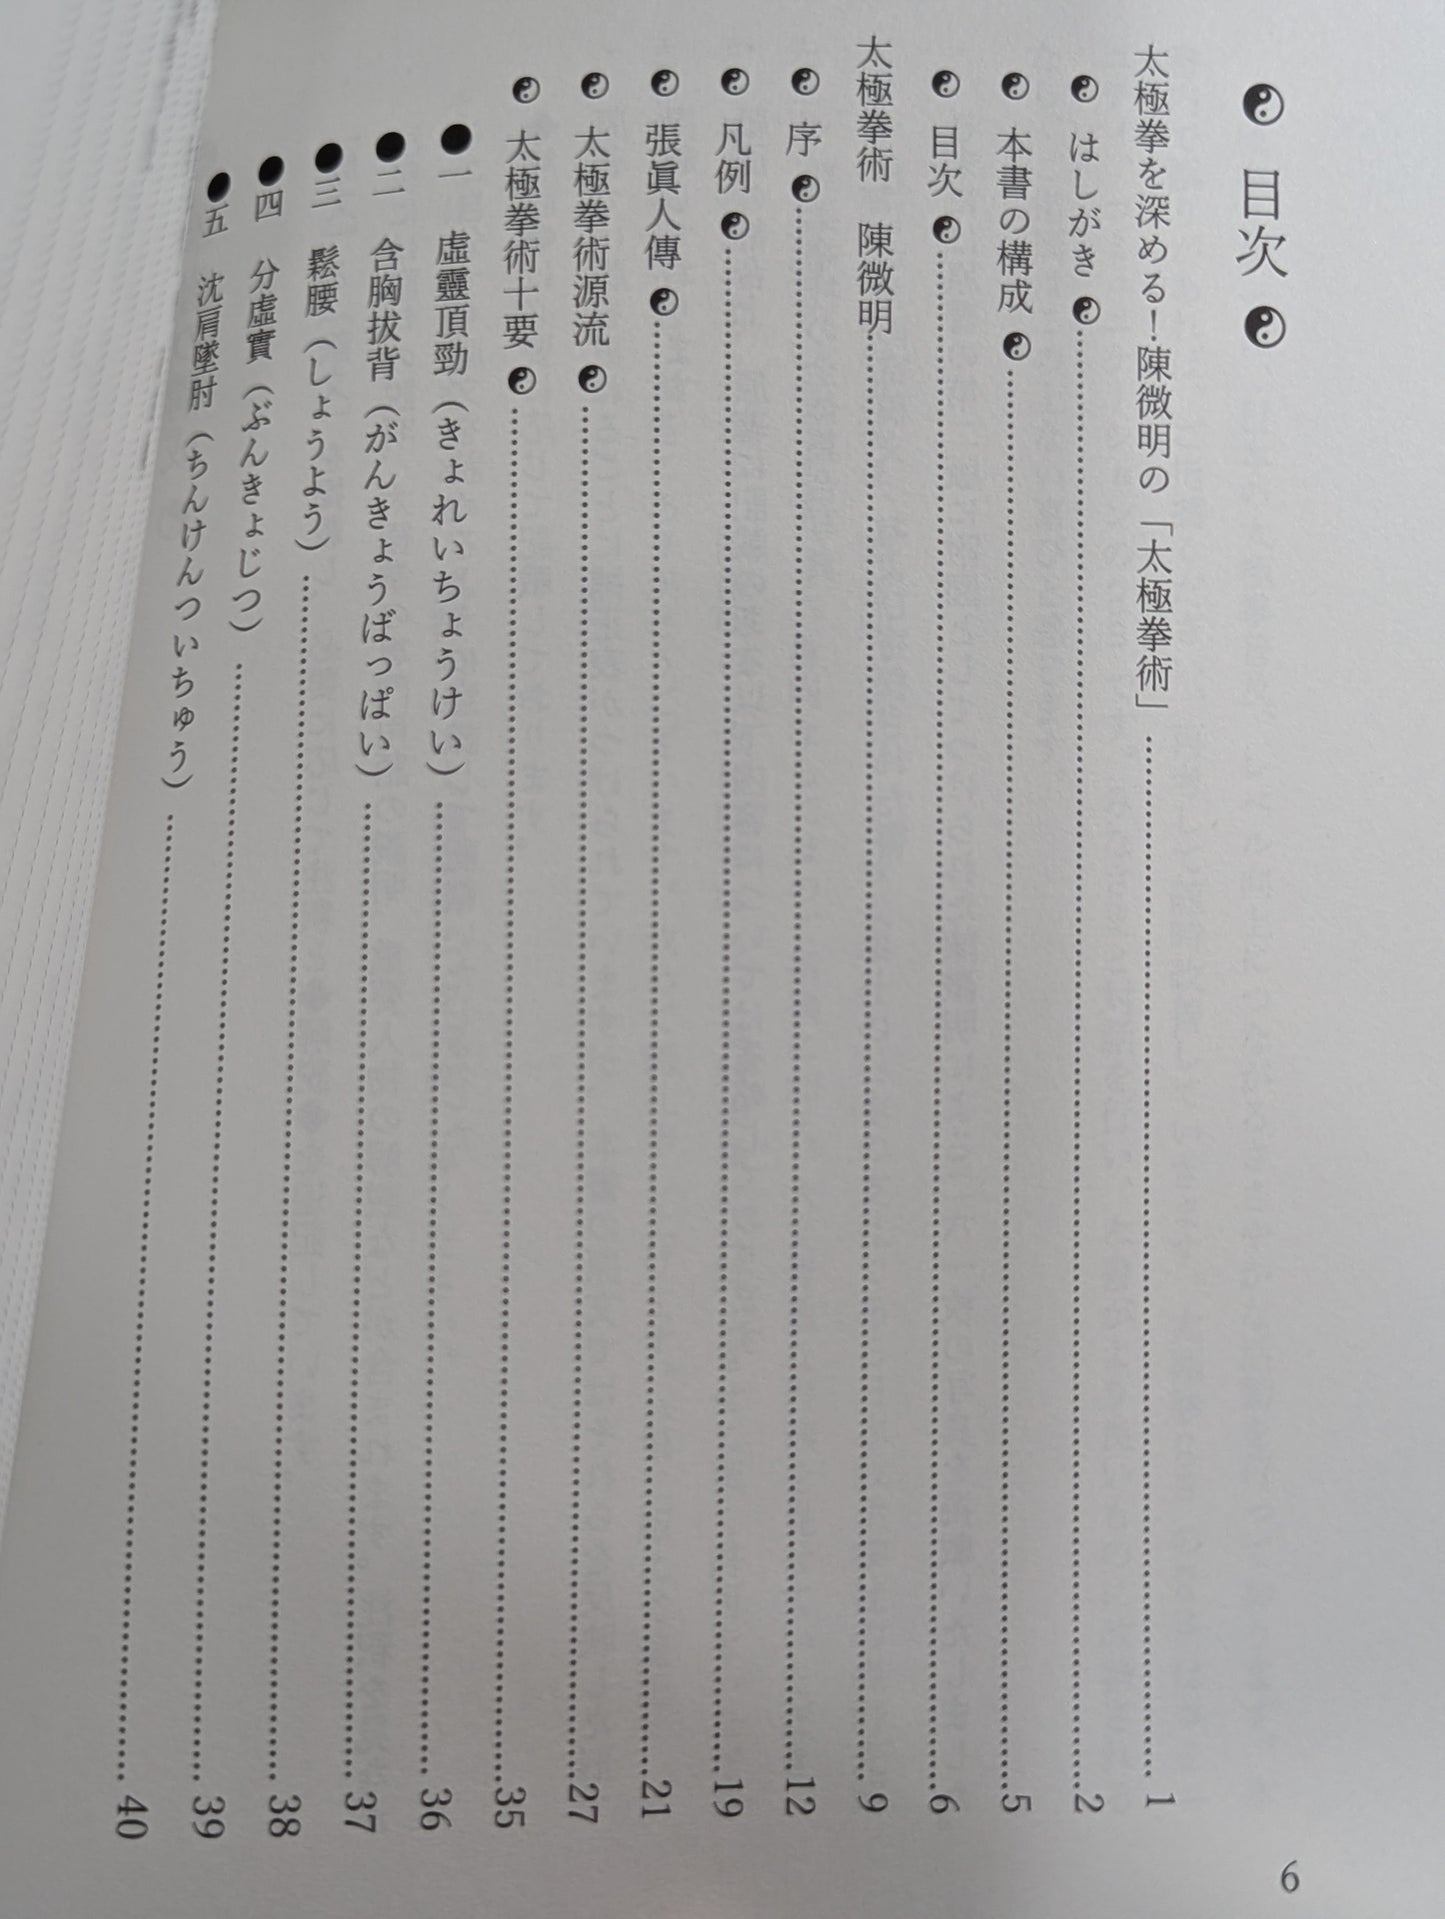 ☯ 目次 ☯
太極拳を深める!陳微明の「太極拳術」……1
☯ はしがき ☯……2
☯ 本書の構成 ☯……5
☯ 目次 ☯……6
太極拳術 陳微明……9
☯ 序 ☯……12
☯ 凡例 ☯……19
☯ 張眞人傳 ☯……21
☯ 太極拳術源流 ☯……27
☯ 太極拳術十要 ☯……35
●一 虛靈頂勁(きょれいちょうけい)……36
●二 含胸拔背(がんきょうばっぱい)……37
●三 鬆腰(しょうよう)……38
●四 分虛實(ぶんきょじつ)……39
●五 沈肩墜肘(ちんけんついちゅう)……40
6